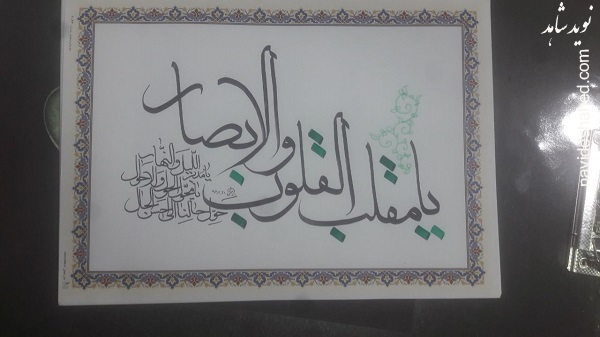 یا مقلب القلوب
والابصار
یا مدبر اللیل والنهار
یا محول الحول والاحوال
حول حالنا الی احسن الحال
نوید شاهد